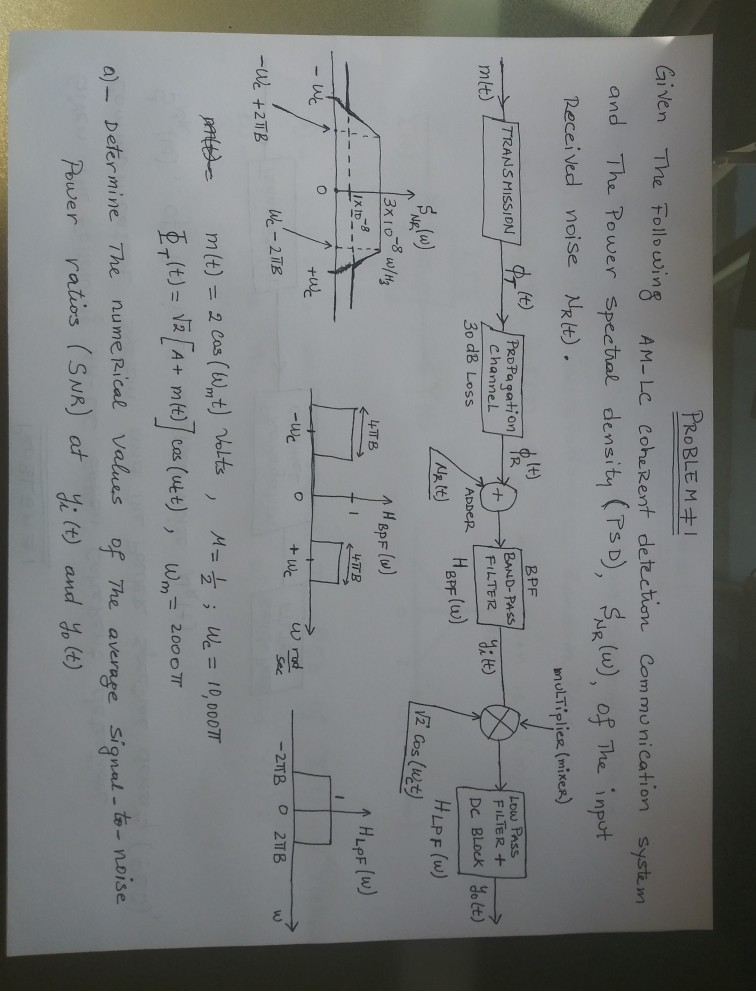 PROBLEM # 1
Given The Following AM-LC coheRent detection Communication system
and The Power Spectral density (PSD), S_NR(ω), of The input
Received noise N_R(t).
m(t)
TRANSMISSION
ϕ_T(t)
PROPagation
channel
30 dB Loss
ϕ_R(t)
+
ADDER
N_R(t)
BPF
BAND-PASS
FILTER
H_BPF(ω)
y_i(t)
multiplier (mixer)
√2 cos(ω_ct)
LOW PASS
FILTER +
DC BLOCK
H_LPF(ω)
y_o(t)
S_NR(ω)
3×10⁻⁸ W/Hz
1×10⁻⁸
-ω_c
0
+ω_c
-ω_c+2πB
ω_c-2πB
H_BPF(ω)
4πB
1
4πB
-ω_c
0
+ω_c
ω rad/sec
H_LPF(ω)
1
-2πB 0 2πB
ω
m(t) = 2 cos(ω_mt) Volts, μ = 1/2 ; ω_c = 10,000π
Φ_T(t) = √2 [A + m(t)] cos(ω_ct), ω_m = 2000π
a)- Determine The numeRical values of The average signal-to-noise
Power ratios (SNR) at y_i(t) and y_o(t)